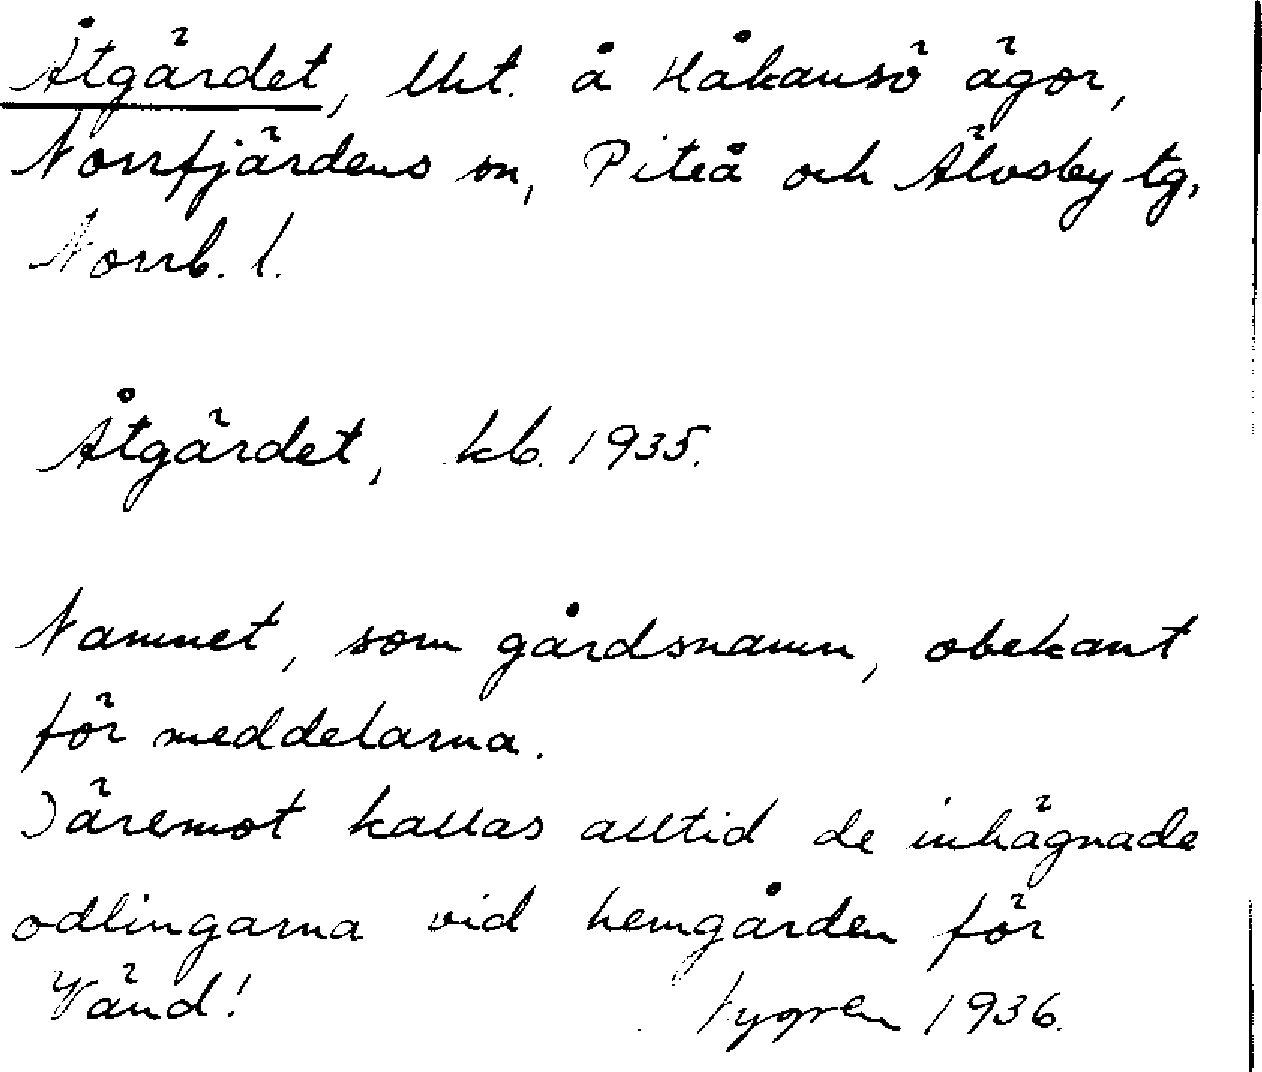 Åtgärdet, lht. å Håkansö ägor,
Norrfjärdens sn, Piteå och Älvsby tg,
Norrb. l.
Åtgärdet, kb. 1935.
Namnet, som gårdsnamn, obekant
för meddelarna.
Däremot kallas alltid de inhägnade
odlingarna vid hemgården för
Vänd! Nygren 1936.